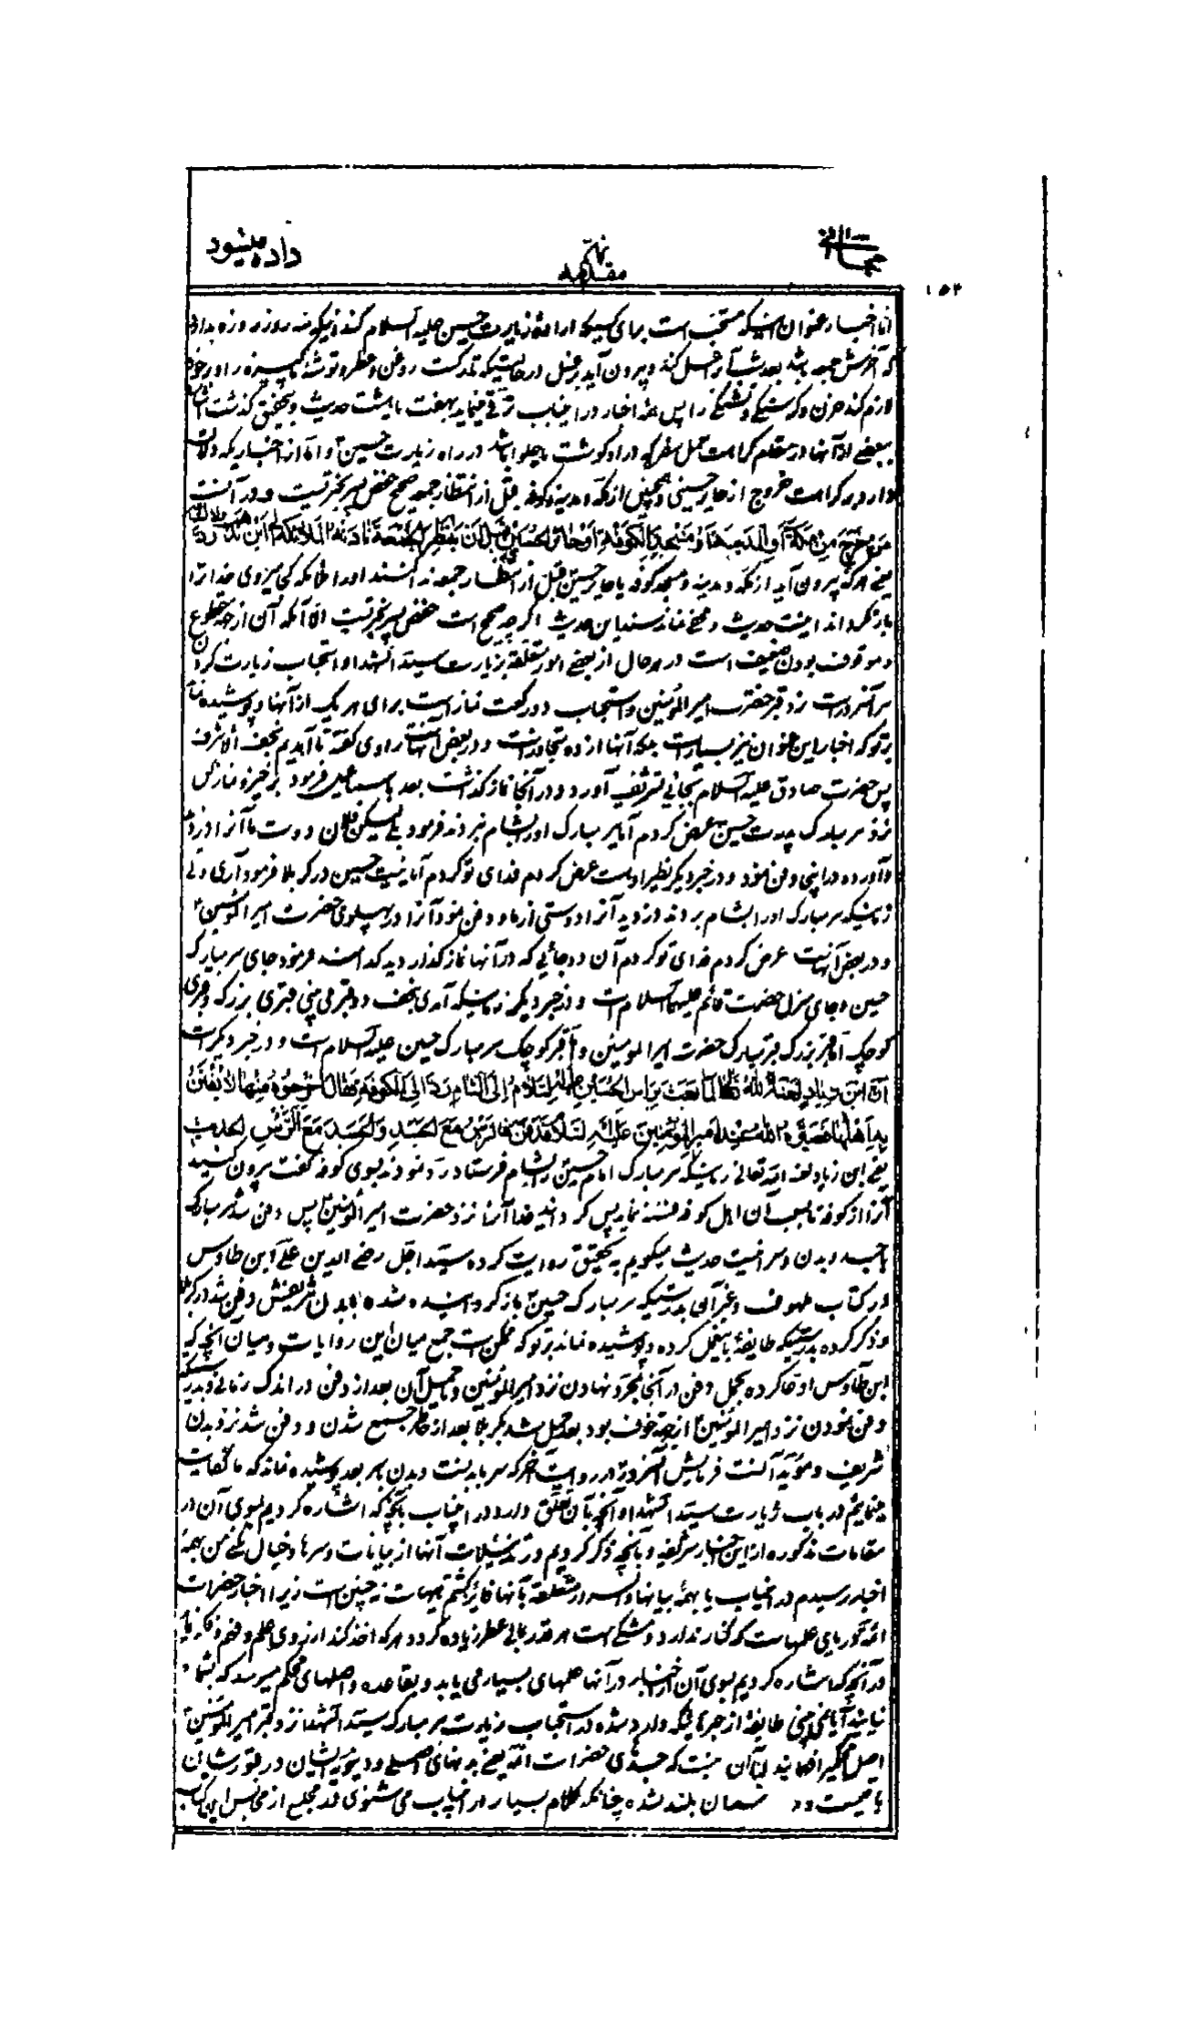 داده میشود
مقدمه
۱۵۲
اما اخبار عنوان اینکه مستحب است برای کسیکه اراده زیارت حسین علیه السلام کند اینکه سه روز روزه بدارد
که آخرش جمعه باشد بعد شب غسل کند و بیرون آید در حالتیکه روغن و عطر و توشه پاکیزه را و بر خود
لازم کند حزن و گرسنگی و تشنگی را پس اخبار در اینباب ترقی مینماید بهفت یا بیشت حدیث و بتحقیق گذشت
ببعضی از آنها در مقام کراهت حمل سفره که در او گوشت یا حلوا باشد در راه زیارت حسین و اما از اخباریکه دلالت
دارد بر کراهت خروج از حایر حسینی و همچنین از مکه و مدینه و کوفه قبل از انتظار جمعه صحیح حفص بن بختریست و در آنست
مَن خَرَجَ مِن مَکَّةَ أو المَدینَةِ أو مَسجِدِ الکوفَةِ أو حائرِ الحُسَینِ قَبلَ أن یَنتَظِرَ الجُمُعَةَ نادَتهُ المَلائکةُ أینَ تَذهَبُ لا رَدَّکَ اللهُ
یعنی هرکه بیرون آید از مکه و مدینه و مسجد کوفه یا حایر حسین قبل از انتظار جمعه ندا کنند او را ملائکه کجا میروی خدا ترا
باز نگرداند اینست حدیث و مخفی نماند سند این حدیث اگرچه صحیح است حفص بن بختریست الا آنکه آن از جهة مقطوع
و موقوف بودن ضعیف است در هر حال از بعضی امور متعلقه بزیارت سید الشهدا و استحباب زیارت کردن
سر آنسرور است نزد قبر حضرت امیر المؤمنین و استحباب دو رکعت نماز است برای هر یک از آنها و پوشیده نماند
بر تو که اخبار این عنوان نیز بسیار است بلکه آنها از ده متجاوز است و در بعض آنهاست راوی گفته تا آمدیم نجف الاشرف
پس حضرت صادق علیه السلام بجائی تشریف آورد و در آنجا نماز گذاشت بعد باسماعیل فرمود برخیز و نماز کن
نزد سر مبارک جدت حسین عرض کردم آیا سر مبارک او را بشام نبردند فرمود بلی لیکن فلان دوست ما آنرا دزدید
و آورده در اینجا دفن نمود و در خبر دیگر نظیر او است عرض کردم فدای تو گردم آیا نیست حسین در کربلا فرمود آری ولی
زمانیکه سر مبارک او را بشام بردند دزدید آنرا دوستی از ما و دفن نمود آنرا در پهلوی حضرت امیر المؤمنین
و در بعض آنهاست عرض کردم فدای تو گردم آن دو جائی که در آنها نماز گذاردید کدامند فرمود جای سر مبارک
حسین و جای منزل حضرت قائم علیهما السلام است و در خبر دیگر زمانیکه آمدی بنجف دو قبر می بینی قبری بزرگ و قبری
کوچک آما قبر بزرگ قبر مبارک حضرت امیر المومنین و اما قبر کوچک سر مبارک حسین علیه السلام است و در خبر دیگر است
أنّ ابنَ زیادٍ لَعَنَهُ اللهُ لمّا بَعَثَ بِرأسِ الحُسَینِ علیه السَّلامُ إلی الشّامِ رُدَّ إلی الکوفَةِ فقالَ أخرِجوهُ مِنها لا یُفتَتَنُ
بِهِ أهلُها فَصَیَّرَهُ اللهُ عِندَ أمیرِ المؤمِنینَ عَلَیهِ السَّلامُ فَدُفِنَ فالرَّأسُ مَعَ الجَسَدِ وَالجَسَدُ مَعَ الرَّأسِ الحدیث
یعنی ابن زیاد لعنه الله تعالی زمانیکه سر مبارک امام حسین را بشام فرستاد رد نمودند بسوی کوفه گفت بیرون کنید
آنرا از کوفه تا بسبب آن اهل کوفه فتنه ننمایند پس گردانید خدا آنرا نزد حضرت امیر المؤمنین پس دفن شد سر مبارک
با جسد و بدن و سر اینست حدیث میگویم بتحقیق روایت کرده سید اجل رضی الدین علی ابن طاوس
در کتاب ملهوف و غیر آن بدرستیکه سر مبارک حسین باز گردانیده شده با بدن شریفش دفن شد در کربلا
و ذکر کرده بدرستیکه طایفه باین عمل کرده و پوشیده نماند بر تو که ممکن است جمع میان این روایات و میان آنچه که
ابن طاوس ادعا کرده بحمل دفن در آنجا بمجرد نهادن نزد امیر المؤمنین و حمل آن بعد از دفن در اندک زمانی و بدرستیکه
دفن نمودن نزد امیر المؤمنین از جهة خوف بود بعد حمل شد بکربلا بعد از خاطر جمع شدن و دفن شد نزد بدن
شریف و مؤید آنست فرمایش آنسرور در روایت آخر که سر با بدنست و بدن با سر بعد پوشیده نماند که ما کفایت
مینمائیم در باب زیارت سید الشهدا و آنچه بآن تعلق دارد در اینباب بآنچه که اشاره کردیم بسوی آن در
مقامات مذکوره از این اخبار شریفه و بآنچه ذکر کردیم در تذییلات آنها از بیانات و سرها و خیال مکن من بهمه
اخبار رسیدم در اینباب یا بهمه بیانها و اسرار متعلقه بآنها فایز گشتم هیهات نه چنین است زیرا اخبار حضرات
ائمه دریای علمهاست که کنار ندارد و مشکی است هر قدر بمالی عطر زیاده گردد هرکه اخذ کند از روی علم و فهم و فکر
در آنچه که اشاره کردیم بسوی آن از اخبار در آنها علمهای بسیار می یابد و بقاعده و اصلهای محکم میرسد که
نیابد آیا نمی بینی طایفه از خبرهائیکه وارد شده در استحباب زیارت سر مبارک سید الشهدا نزد قبر امیر المؤمنین
اصل محکمی و آن نیست که جسدهای حضرات ائمه یعنی بدنهای اصلی و دنیوی ایشان در قبور شان
باقیست و در آسمان بلند نشده چنانکه کلام بسیار در اینباب می شنوی در مجلس از مجالس این کتاب